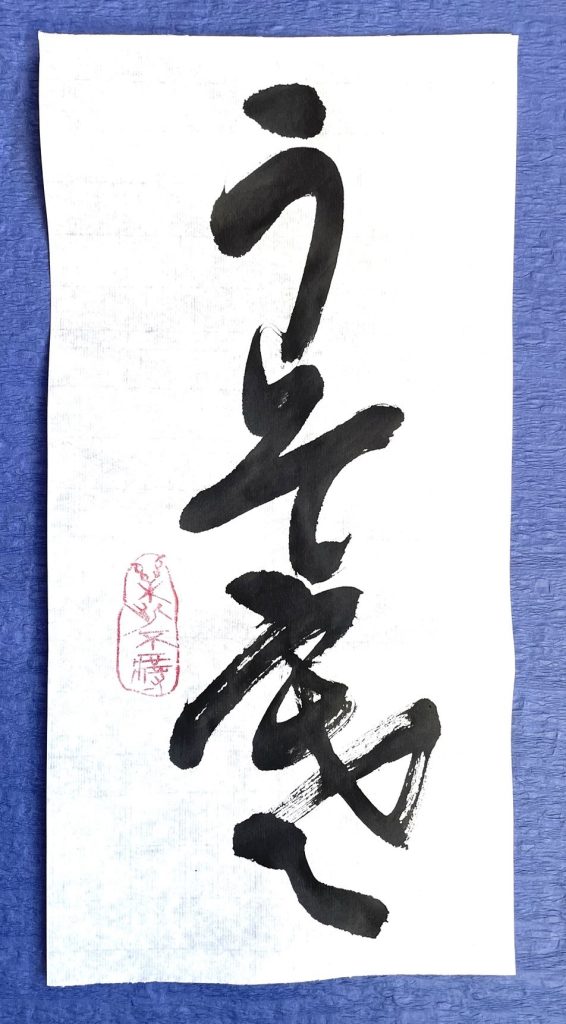 うそ寒